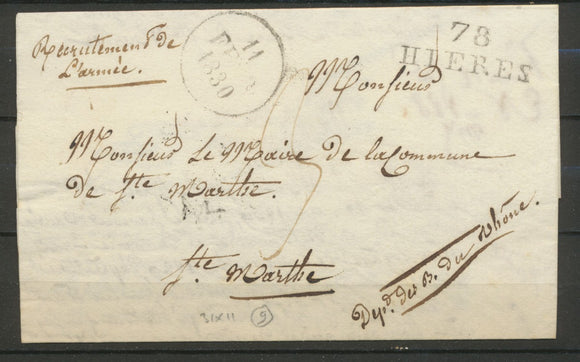 Recrutement de
L'armée.
11
1830
78
HIERES
Monsieur
Monsieur Le Maire de la Commune
de Ste Marthe.
Ste Marthe
Depd. des B. du Rhône.
31X11 9